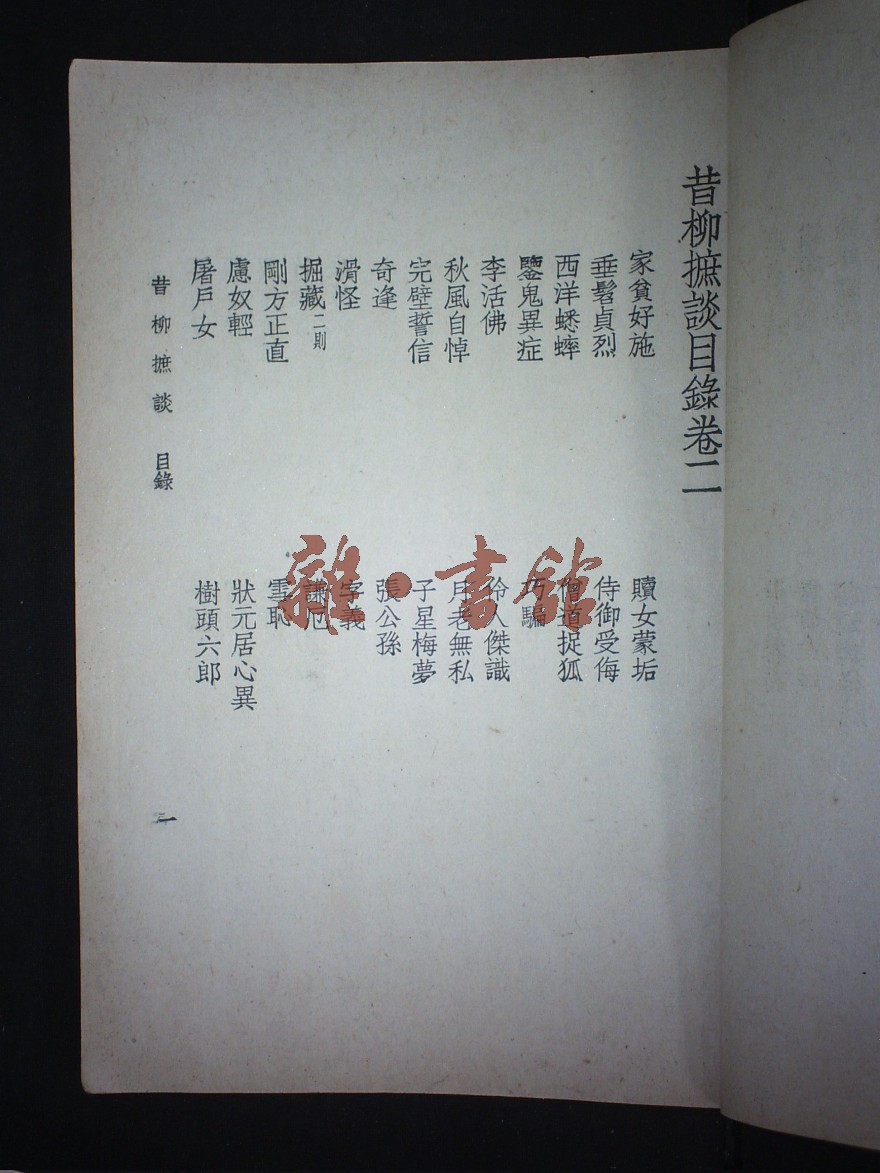 昔柳摭談目錄卷二
家貧好施
贖女蒙垢
垂髫貞烈
侍御受侮
西洋蟋蟀
僧道捉狐
鬼異症
巧騙
李活佛
伶人傑識
秋風自悼
月老無私
完璧誓信
子星梅夢
奇逢
張公孫
滑怪
字義
掘藏二則
謙厄
剛方正直
雪恥
慮奴輕
狀元居心異
屠戶女
樹頭六郎
昔柳摭談 目錄
一
雜·書館